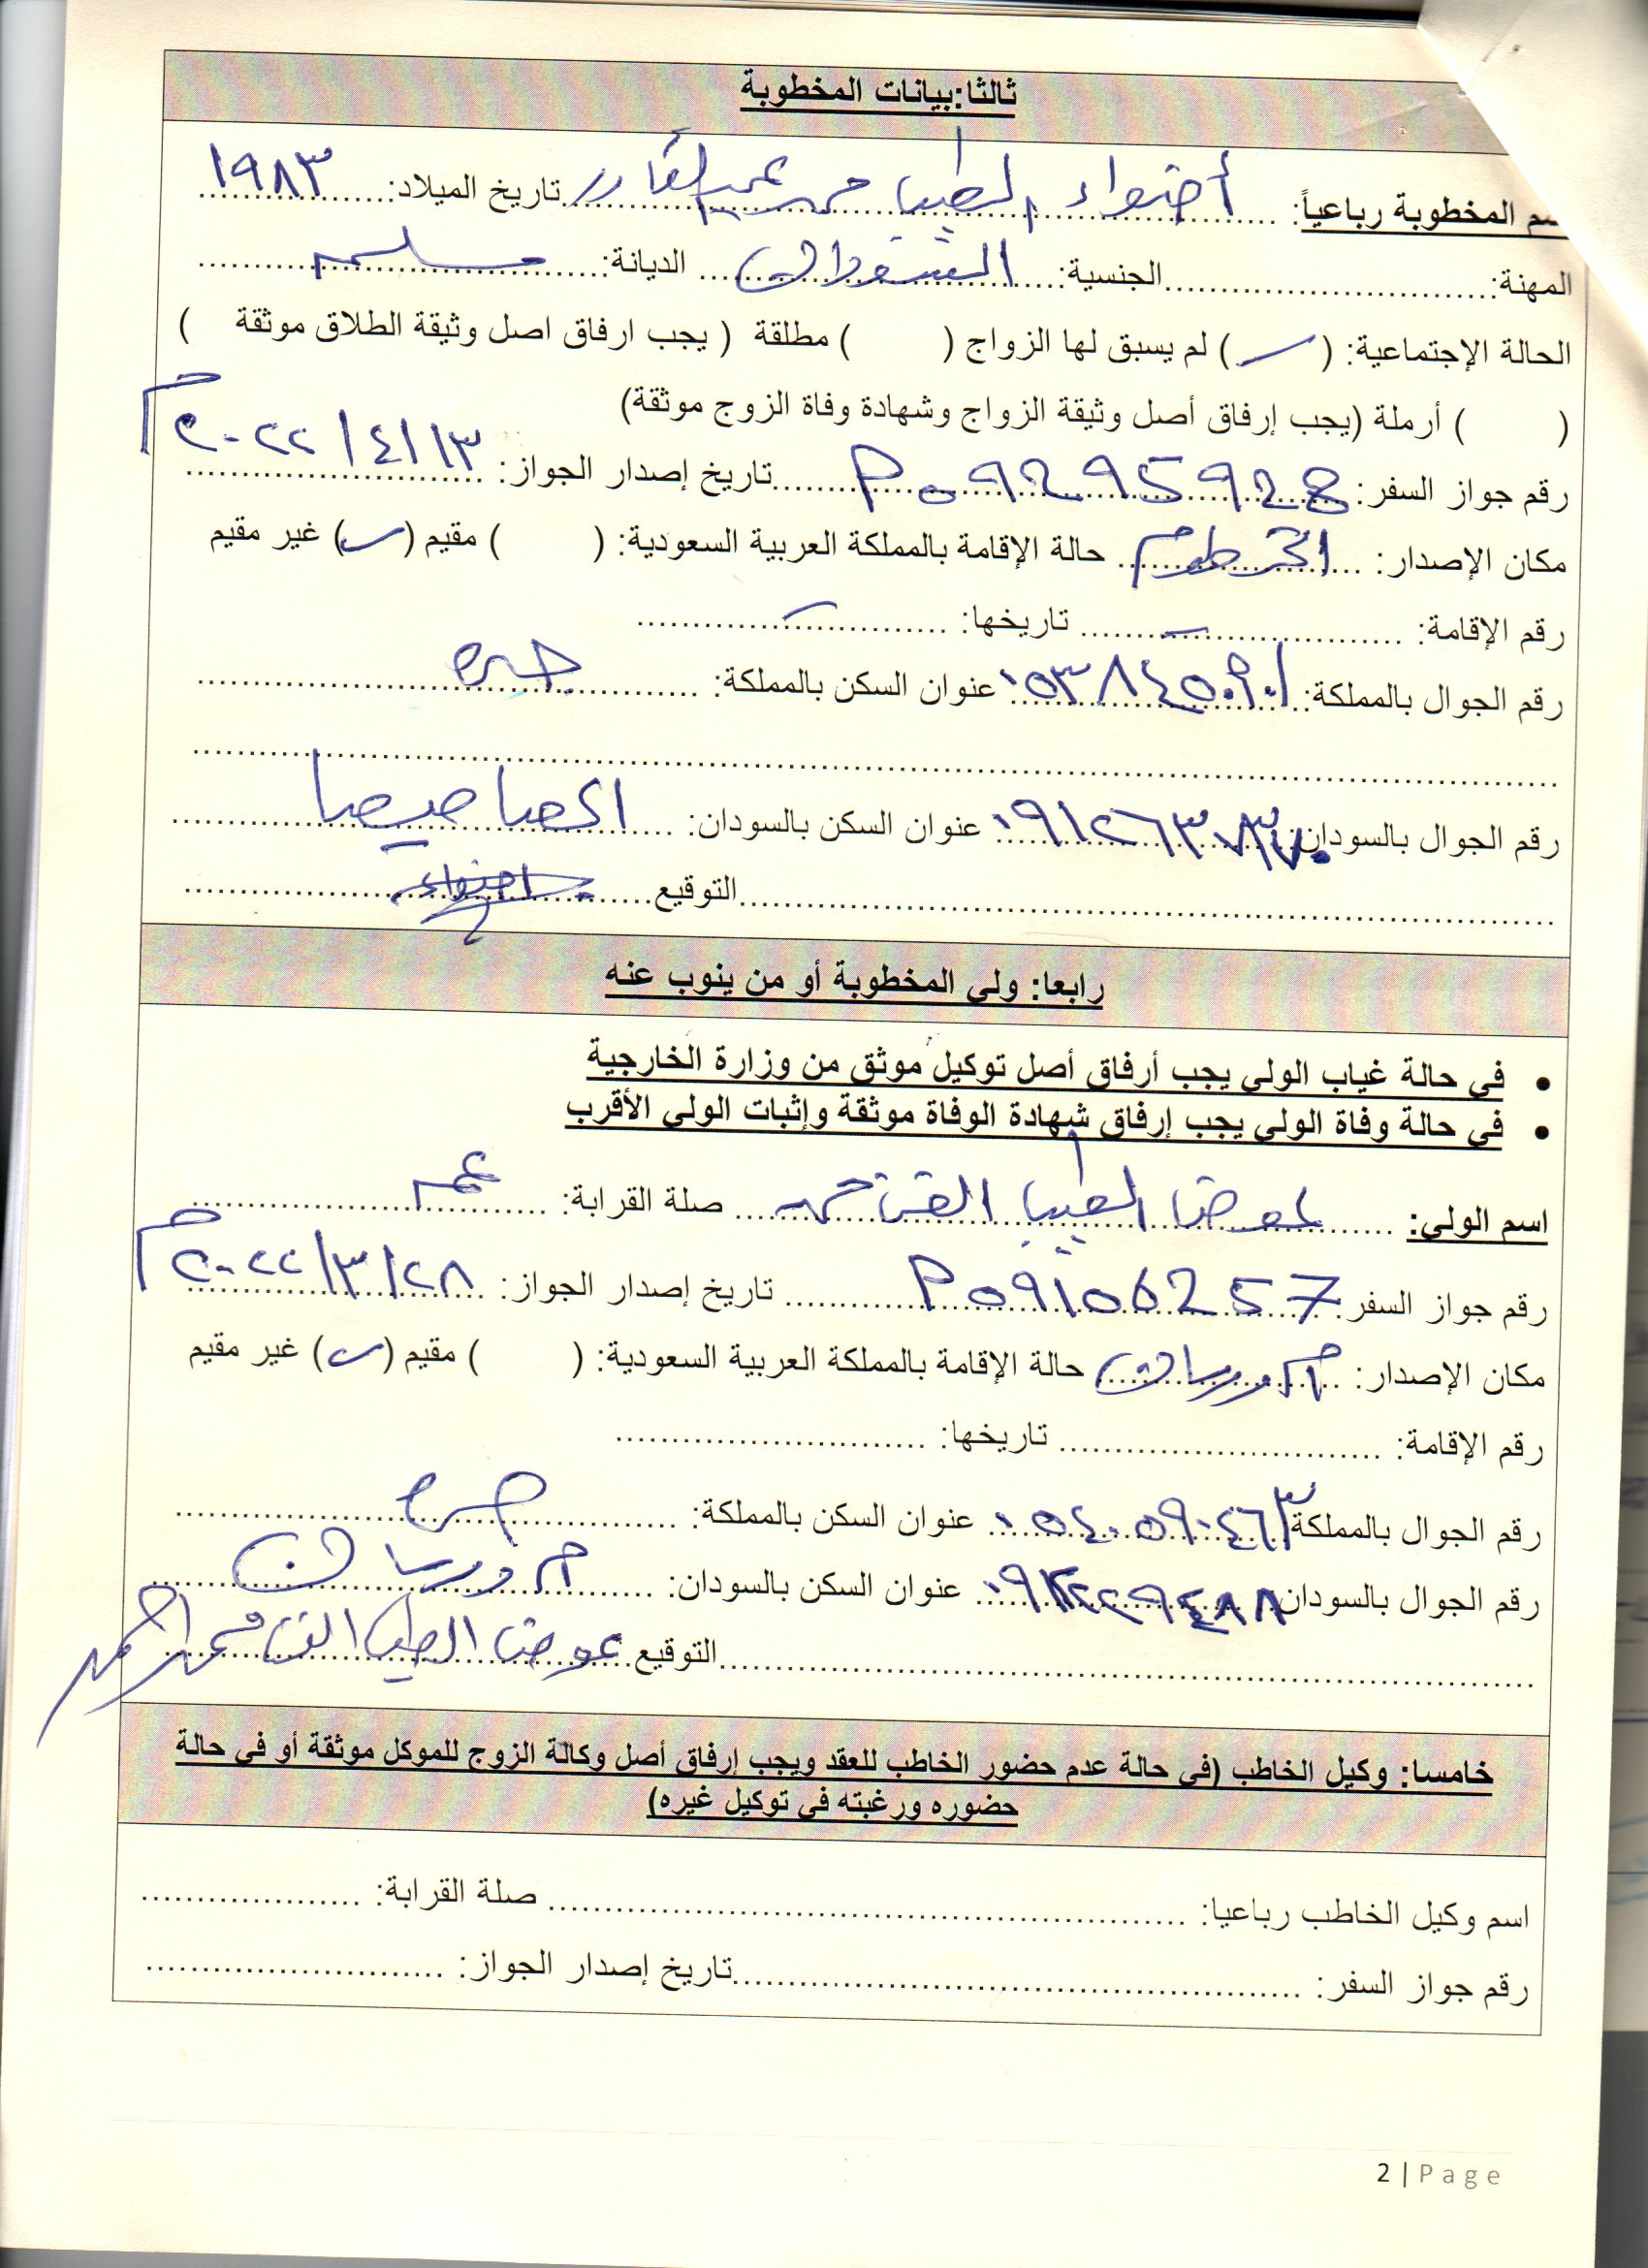 ثالثا:بيانات المخطوبة
سم المخطوبة رباعياً: أضواء الطيب محمد عبدالقادر تاريخ الميلاد: ١٩٨٣
المهنة: الجنسية: السودان الديانة: مسلمه
الحالة الإجتماعية: ( ) لم يسبق لها الزواج ( ) مطلقة ( يجب ارفاق اصل وثيقة الطلاق موثقة )
( ) أرملة (يجب إرفاق أصل وثيقة الزواج وشهادة وفاة الزوج موثقة)
رقم جواز السفر: P09295928 تاريخ إصدار الجواز: ١٣/٤/٢٠٢٢م
مكان الإصدار: الخرطوم حالة الإقامة بالمملكة العربية السعودية: ( ) مقيم ( ) غير مقيم
رقم الإقامة: تاريخها:
رقم الجوال بالمملكة: ٠٥٣٨٤٥٠٩٠١ عنوان السكن بالمملكة: جده
رقم الجوال بالسودان: عنوان السكن بالسودان: الحصاحيصا
التوقيع اضواء
رابعا: ولي المخطوبة أو من ينوب عنه
• في حالة غياب الولي يجب أرفاق أصل توكيل موثق من وزارة الخارجية
• في حالة وفاة الولي يجب إرفاق شهادة الوفاة موثقة وإثبات الولي الأقرب
اسم الولي: عوض الطيب محمد صلة القرابة: عم
رقم جواز السفر: P09106257 تاريخ إصدار الجواز: ٢٨/٣/٢٠٢٢م
مكان الإصدار: ام درمان حالة الإقامة بالمملكة العربية السعودية: ( ) مقيم ( ) غير مقيم
رقم الإقامة: تاريخها:
رقم الجوال بالمملكة ٠٥٤٠٥٩٠٤٦٣ عنوان السكن بالمملكة: جده
رقم الجوال بالسودان عنوان السكن بالسودان: ام درمان
التوقيع عوض الطيب محمد احمد
خامسا: وكيل الخاطب (في حالة عدم حضور الخاطب للعقد ويجب إرفاق أصل وكالة الزوج للموكل موثقة أو في حالة
حضوره ورغبته في توكيل غيره)
اسم وكيل الخاطب رباعيا: صلة القرابة:
رقم جواز السفر: تاريخ إصدار الجواز:
2 | Page